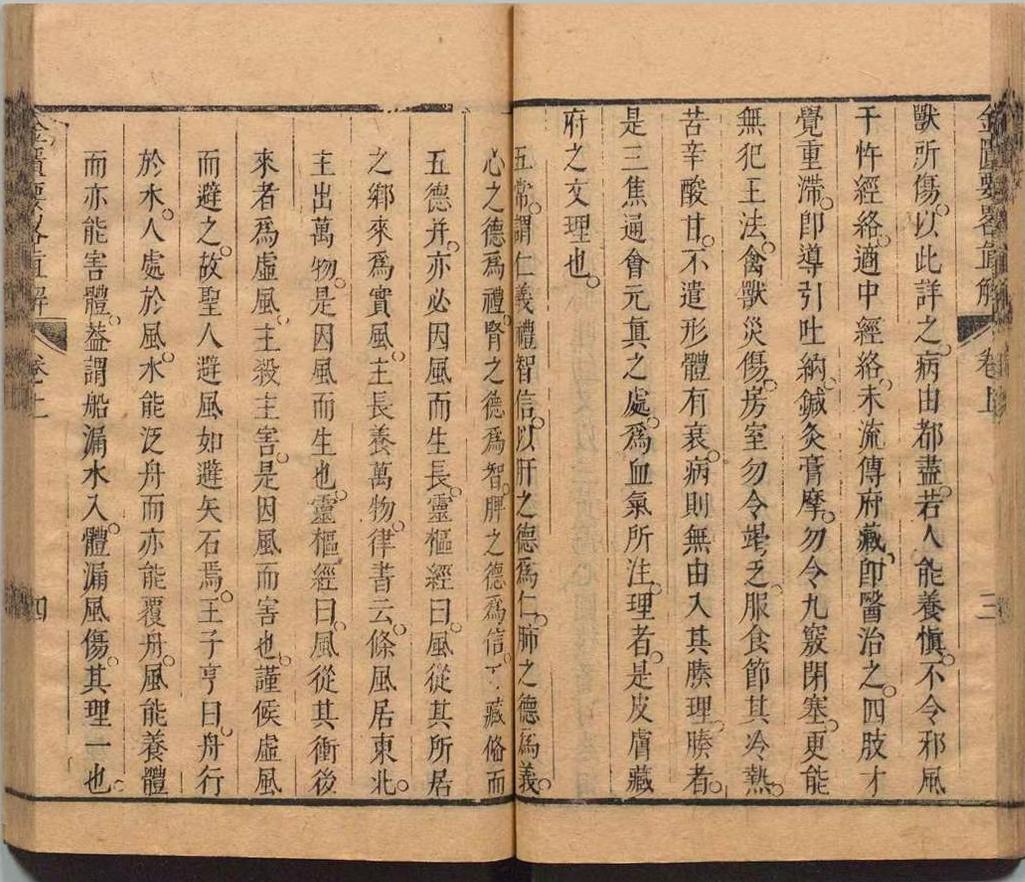 金匱要畧直解 卷上 三
獸所傷。以此詳之。病由都盡。若人能養慎。不令邪風
干忤經絡。適中經絡。未流傳府藏。卽醫治之。四肢才
覺重滯。卽導引吐納。鍼灸膏摩。勿令九竅閉塞。更能
無犯王法。禽獸災傷。房室勿令竭乏。服食節其冷熱。
苦辛酸甘。不遣形體有衰。病則無由入其腠理。腠者。
是三焦通會元真之處。爲血氣所注。理者。是皮膚藏
府之文理也。
五常。謂仁義禮智信。以肝之德爲仁。肺之德爲義。
心之德爲禮。腎之德爲智。脾之德爲信。藏俻而
五德并。亦必因風而生長。靈樞經曰。風從其所居
之鄉來爲實風。主長養萬物。律書云。條風居東北。
主出萬物。是因風而生也。靈樞經曰。風從其衝後
來者爲虛風。主殺主害。是因風而害也。謹候虛風
而避之。故聖人避風如避矢石焉。王子亨曰。舟行
於水。人處於風。水能泛舟而亦能覆舟。風能養體
而亦能害體。葢謂船漏水入。體漏風傷。其理一也。
金匱要畧直解 卷上 四